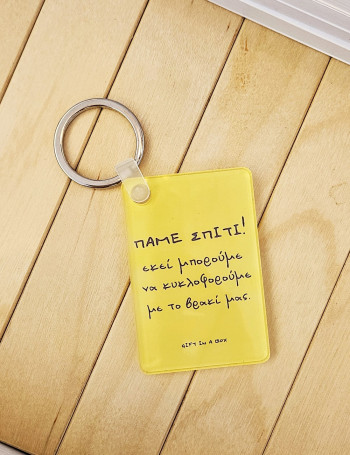 ΠΑΜΕ ΣΠΙΤΙ!
εκεί μπορούμε
να κυκλοφορούμε
με το βρακί μας.
GIFT IN A BOX